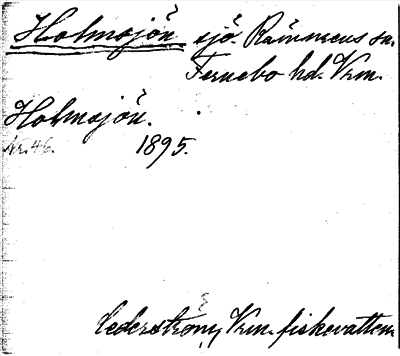 Holmsjön sjö. Rämmens sn.
Fernebo hd. Vrm.
Holmsjön.
Nr. 46. 1895.
Cederström, Vrm. fiskevatten